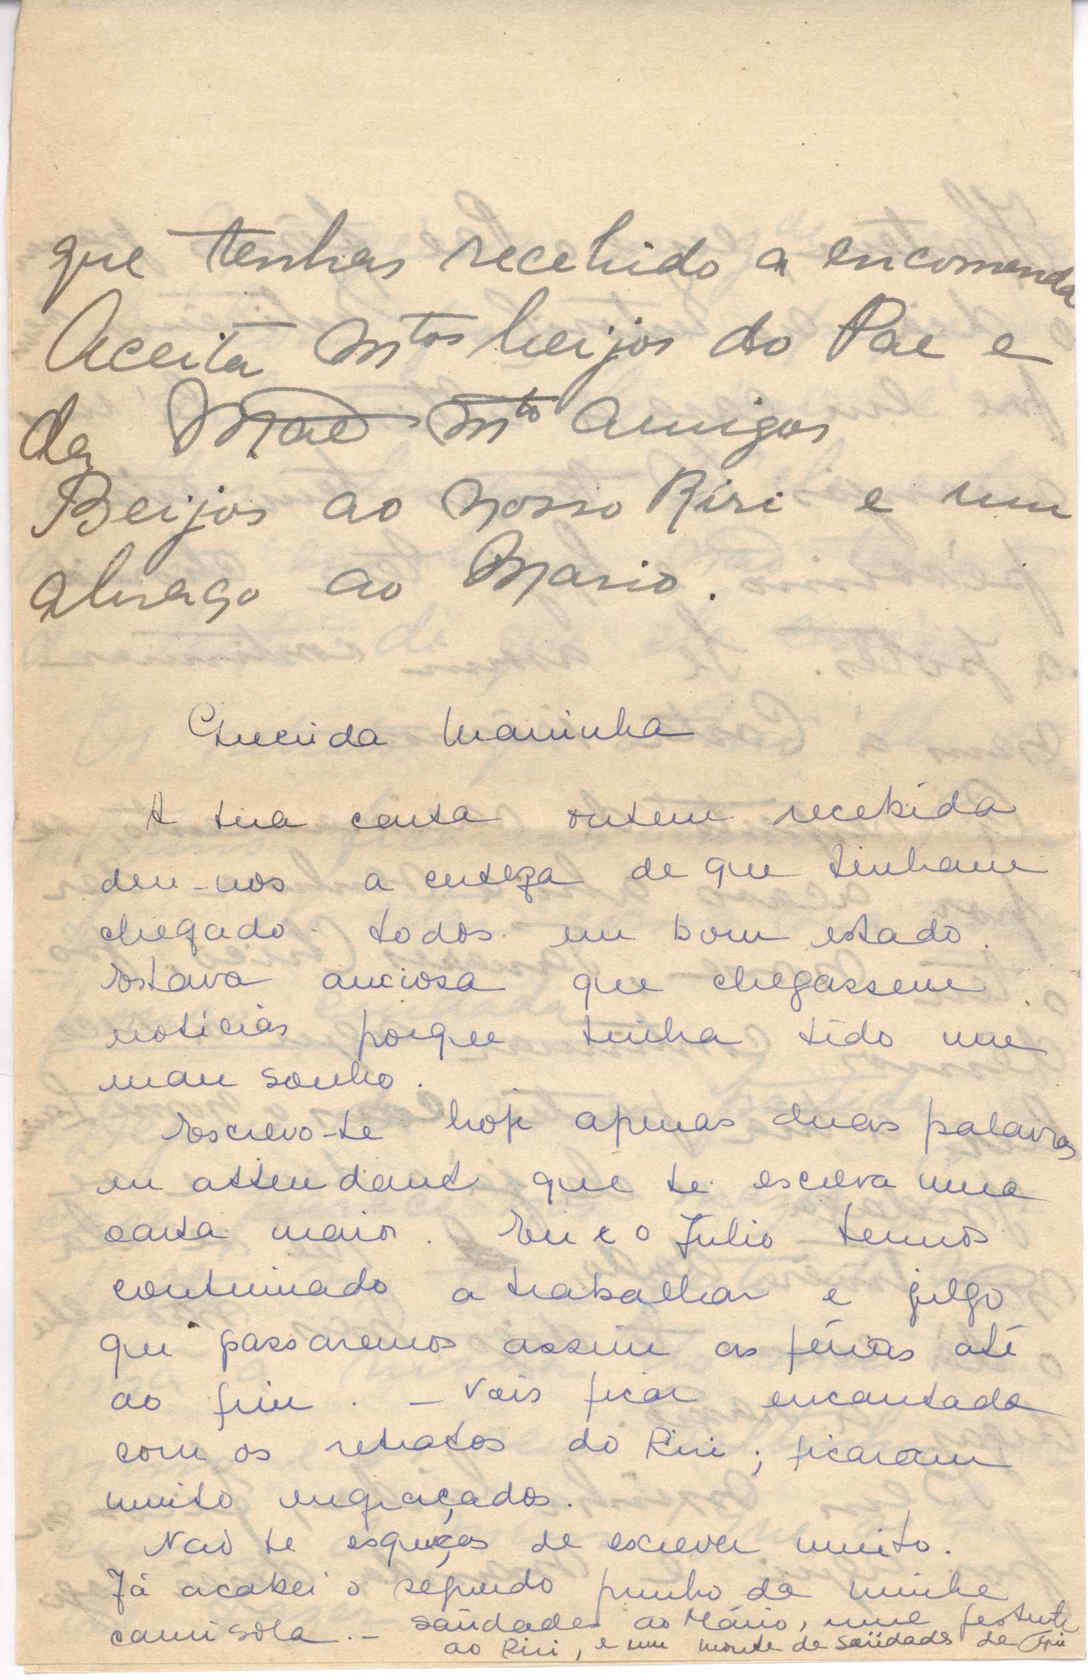 que tenhas recebido a encomenda
Aceita Mtos beijos do Pae e
da Mãe Mto Amigos
Beijos ao nosso Riri e um
abraço ao Mario.
Querida Maninha
A tua carta ontem recebida
deu-nos a certeza de que tinham
chegado todos em bom estado.
Estava anciosa que chegassem
notícias porque tinha tido um
mau sonho.
Escrevo-te hoje apenas duas palavras
en attendant que te escreva uma
carta maior. Eu e o Julio temos
continuado a trabalhar e julgo
que passaremos assim as férias até
ao fim. – Vais ficar encantada
com os retratos do Riri; ficaram
muito engraçados.
Não te esqueças de escrever muito.
Já acabei o segundo punho da minha
camisola. – Saüdades ao Mário, uma
ao Riri, e um monte de saüdades da